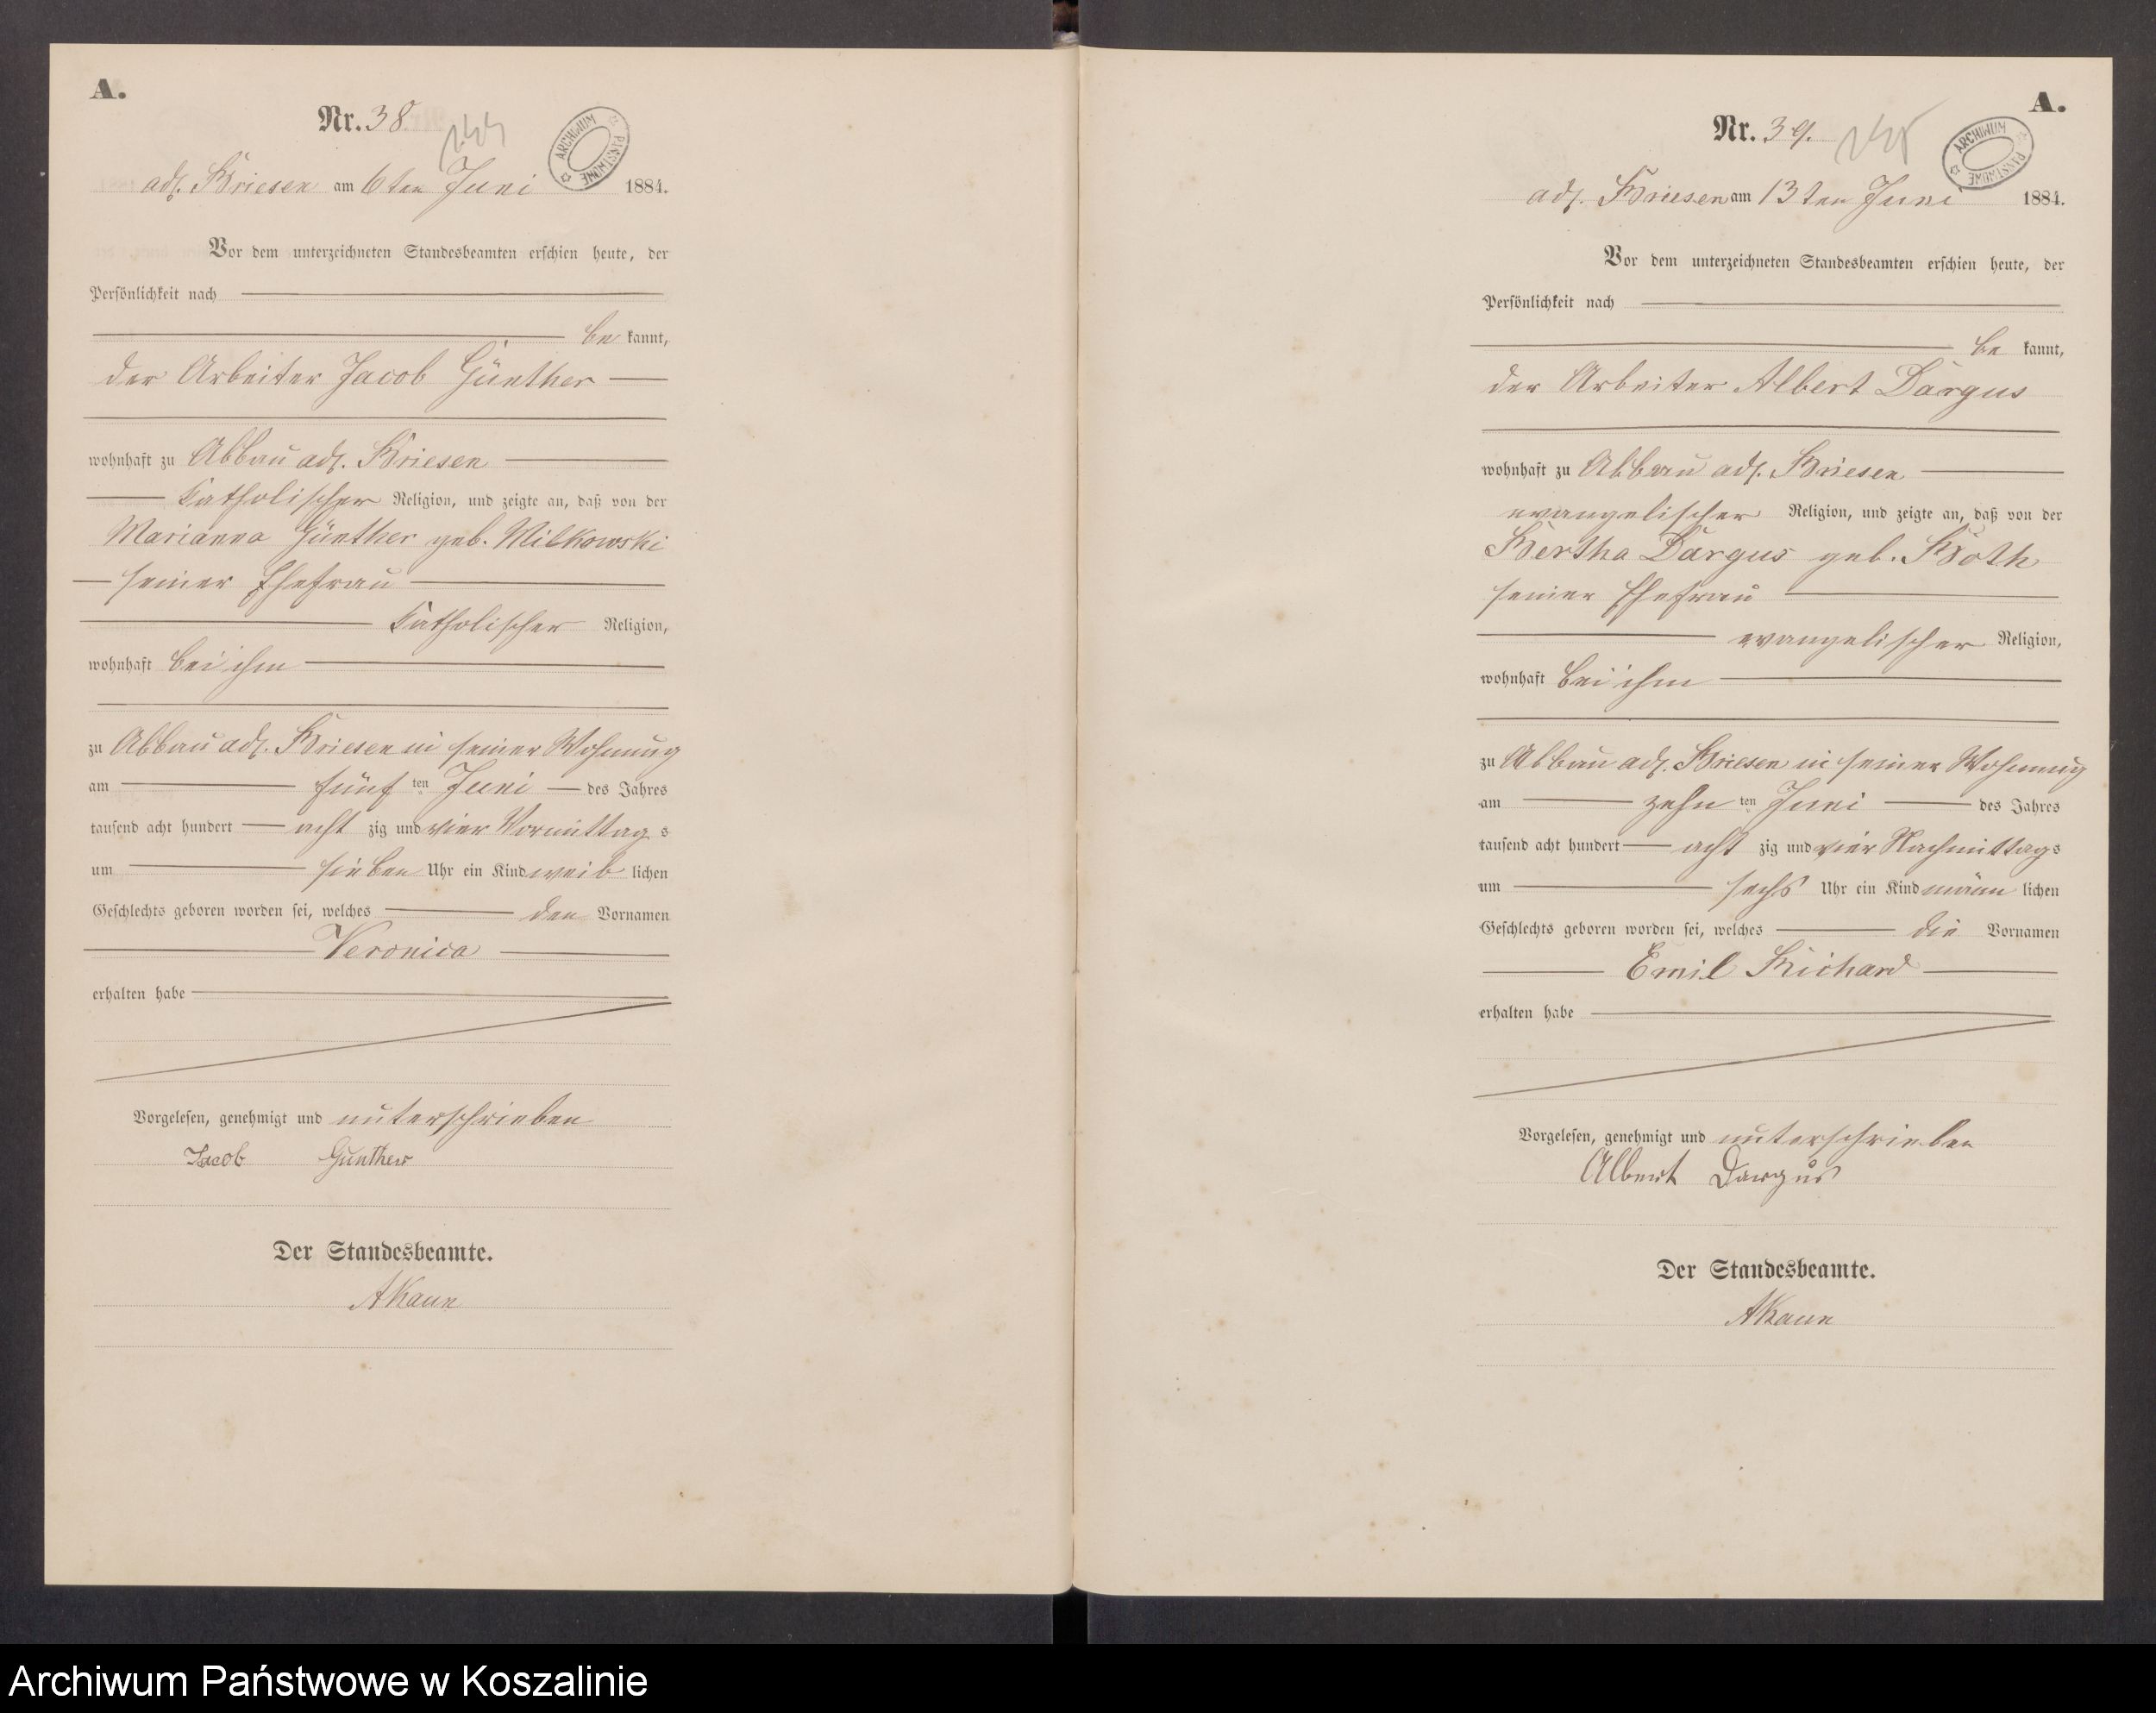 A.
Nr. 38.
144
ARCHIWUM PAŃSTWOWE
adl. Briesen am 6ten Juni 1884.
Vor dem unterzeichneten Standesbeamten erschien heute, der
Persönlichkeit nach
be kannt,
der Arbeiter Jacob Günther
wohnhaft zu Abbau adl. Briesen
katholischer Religion, und zeigte an, daß von der
Marianna Günther geb. Milkowski
seiner Ehefrau
katholischer Religion,
wohnhaft bei ihm
zu Abbau adl. Briesen in seiner Wohnung
am fünf ten Juni des Jahres
tausend acht hundert acht zig und vier Vormittag s
um sieben Uhr ein Kind weib lichen
Geschlechts geboren worden sei, welches den Vornamen
Veronica
erhalten habe
Vorgelesen, genehmigt und unterschrieben
Jacob Gunther
Der Standesbeamte.
AKaun
A.
Nr. 39.
145
ARCHIWUM PAŃSTWOWE
adl. Briesen am 13ten Juni 1884.
Vor dem unterzeichneten Standesbeamten erschien heute, der
Persönlichkeit nach
be kannt,
der Arbeiter Albert Dargus
wohnhaft zu Abbau adl. Briesen
evangelischer Religion, und zeigte an, daß von der
Bertha Dargus geb. Both
seiner Ehefrau
evangelischer Religion,
wohnhaft bei ihm
zu Abbau adl. Briesen in seiner Wohnung
am zehn ten Juni des Jahres
tausend acht hundert acht zig und vier Nachmittag s
um sechs Uhr ein Kind männ lichen
Geschlechts geboren worden sei, welches die Vornamen
Emil Richard
erhalten habe
Vorgelesen, genehmigt und unterschrieben
Albert Dargus
Der Standesbeamte.
AKaun
Archiwum Państwowe w Koszalinie